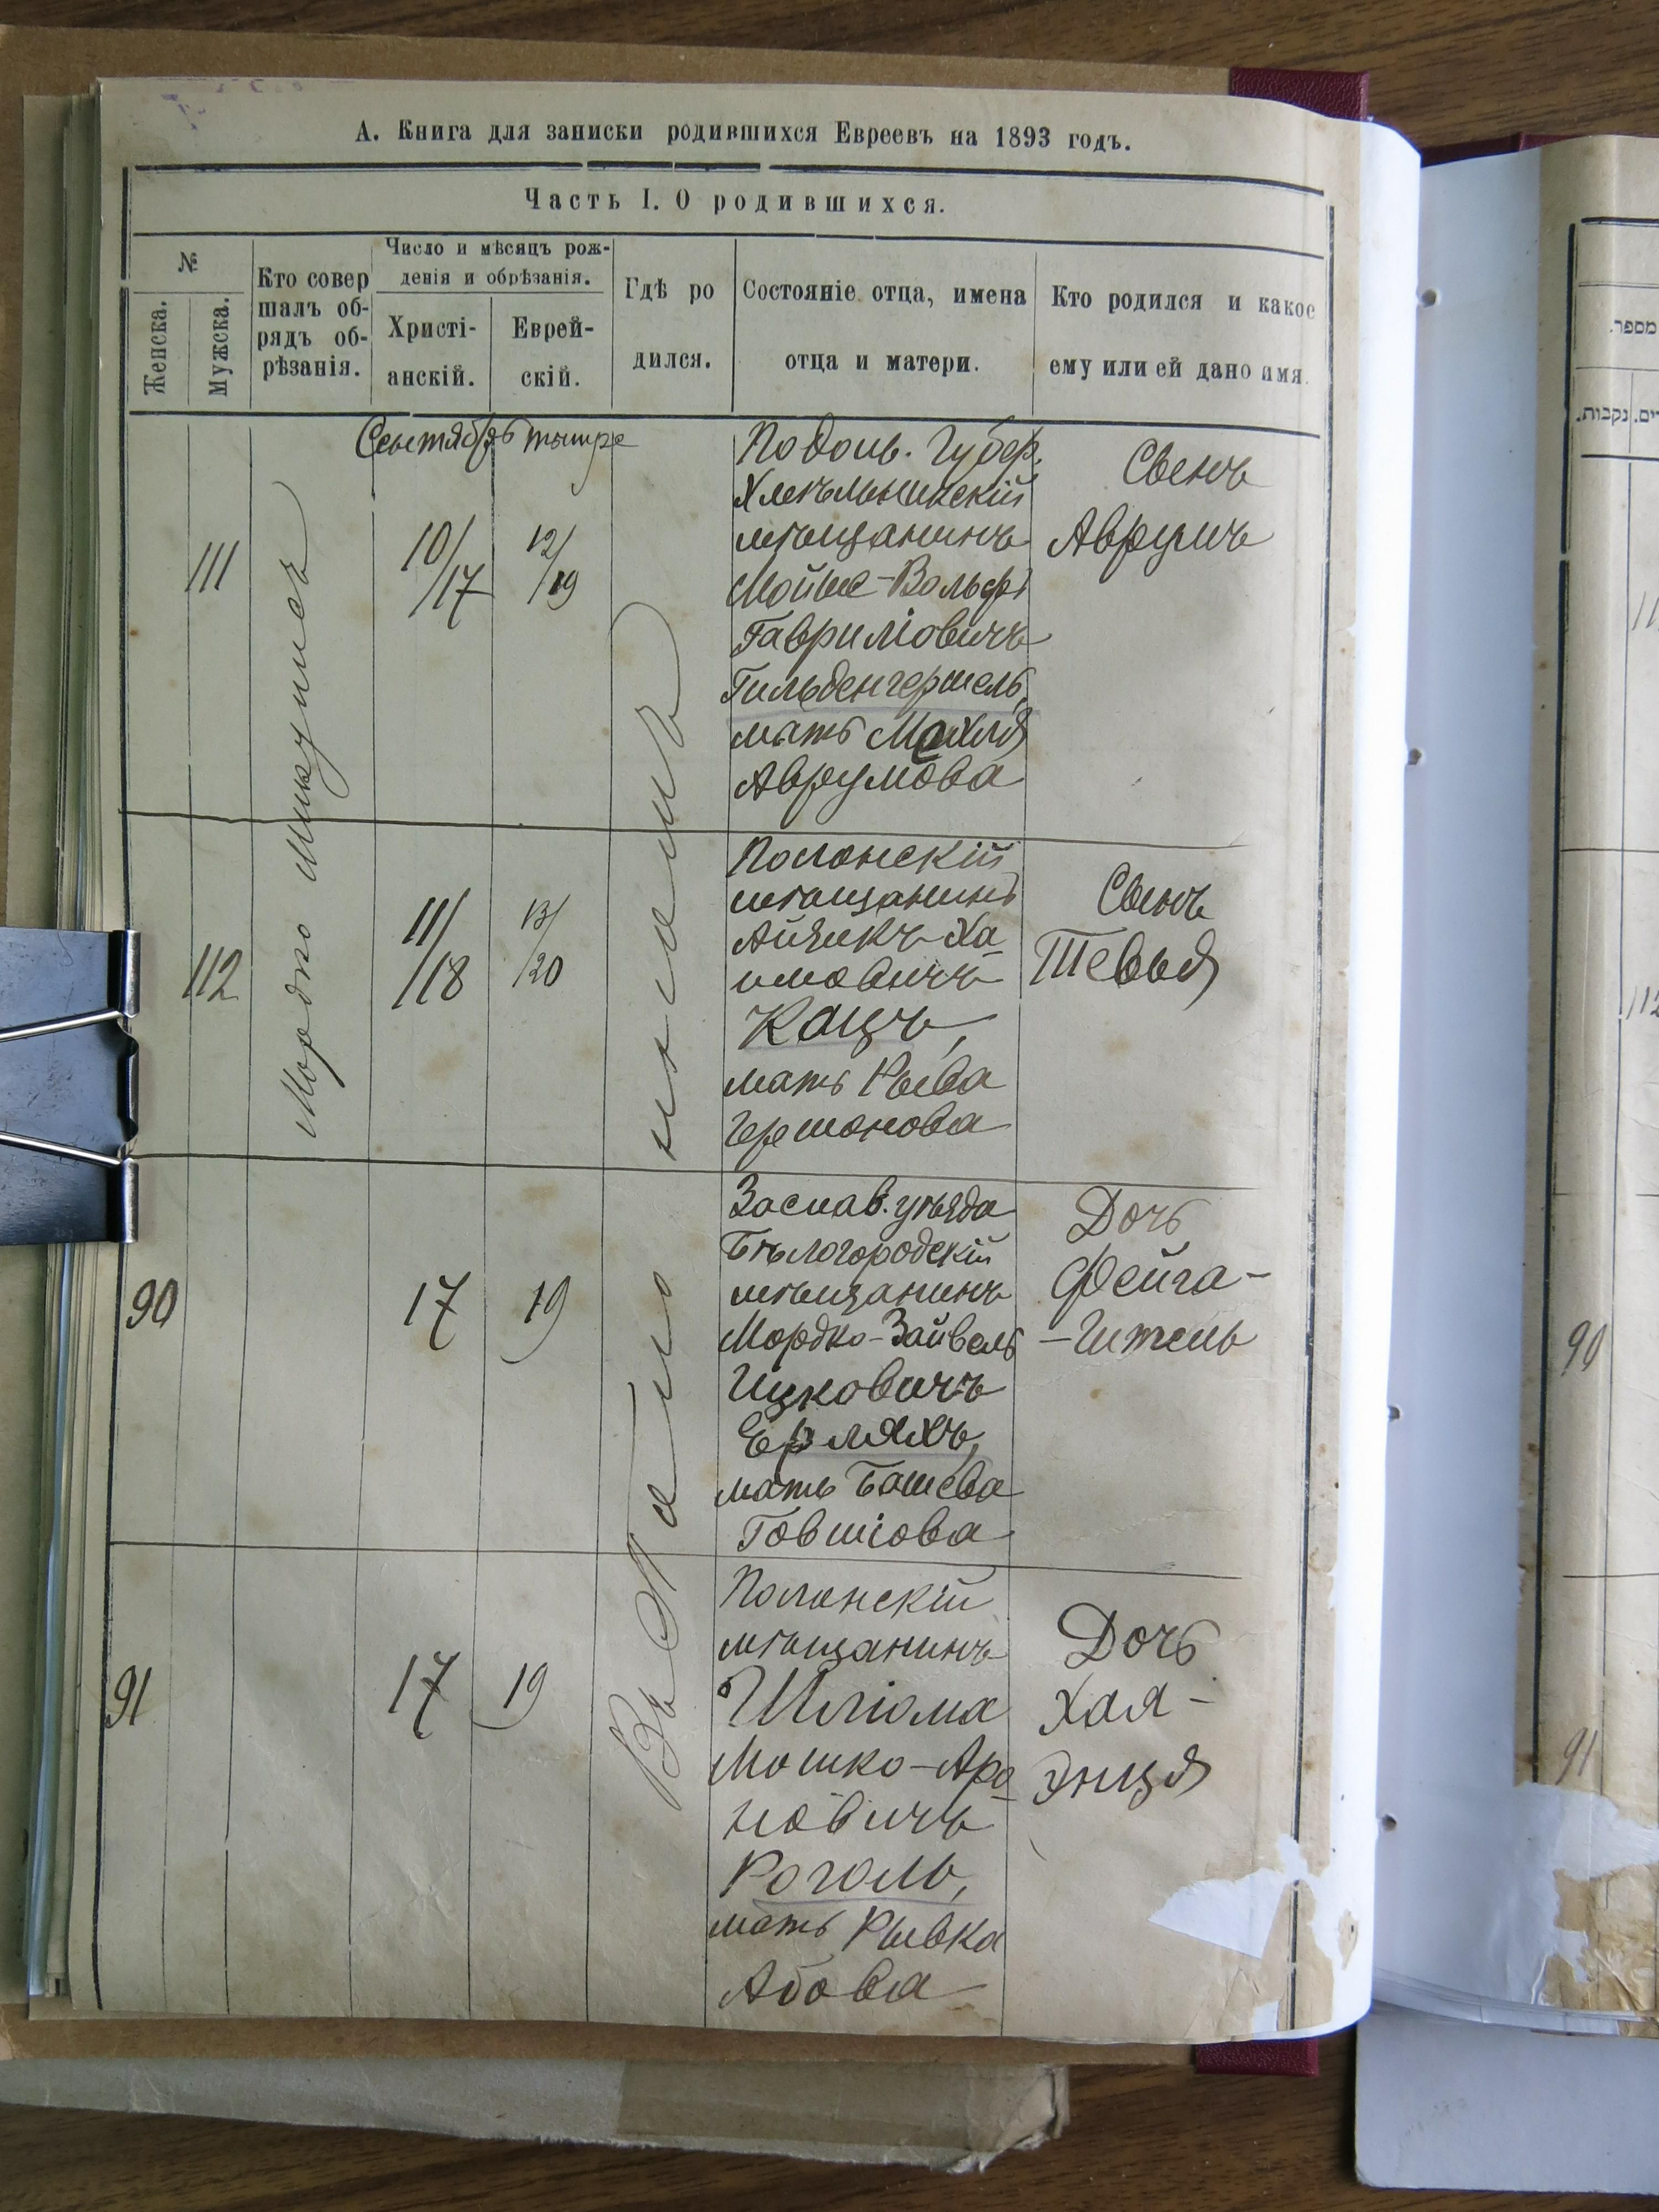 А. Книга для записки родившихся Евреевъ на 1893 годъ.
Часть I. О родившихся.
№
Женска.
Мужска.
Кто совер
шалъ об-
рядъ об-
рѣзанія.
Число и мѣсяцъ рож-
денія и обрѣзанія.
Христі-
анскій.
Еврей-
скій.
Гдѣ ро
дился.
Состояніе отца, имена
отца и матери.
Кто родился и какое
ему или ей дано имя.
Сентябрь тышре
Мордко
Въ
111
10/
/17
12/
/19
Подоль. Губер.
Хмельницкій
мѣщанинъ
Мойше-Вольфъ
Гавриліовичъ
Гильденгершель,
мать Махля
Аврумова
Сынъ
Аврумъ
112
11/
/18
13/
/20
Полонскій
мѣщанинъ
Айзикъ-Ха
имовичъ
Кацъ,
мать Рыва
Гершонова
Сынъ
Тевья
90
17
19
Заслав. уѣзда
Бѣлогородскій
мѣщанинъ
Мордко-Зайвель
Ицковичъ
Ерляхъ,
мать Башева
Говшіова
Дочь
Фейга-
-Гитель
91
17
19
Полонскій
мѣщанинъ
Шліома
Мошко-Аро
новичъ
Роголь,
мать Рывка
Абова
Дочь
Хая-
Энця
מספר.
נקבות.
112
90
91